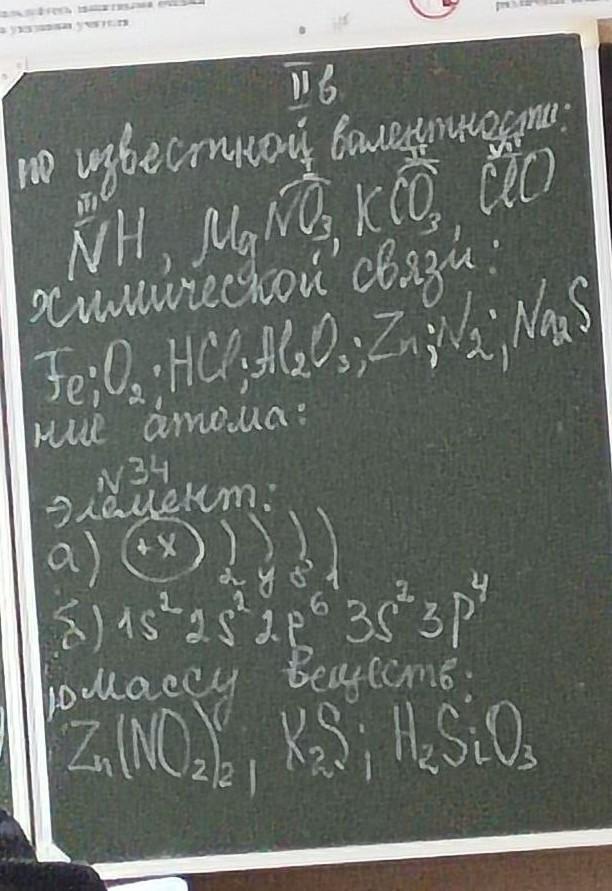 II в
по известной валентности:
III I II VII
NH, MgNO₃, KCO₃, ClO
химической связи:
Fe; O₂; HCl; Al₂O₃; Zn; N₂; Na₂S
ние атома:
N34
элемент:
а) +x ) ) ) )
2 y 8 1
б) 1s² 2s² 2p⁶ 3s² 3p⁴
ю массу веществ:
Zn(NO₂)₂; K₂S; H₂SiO₃